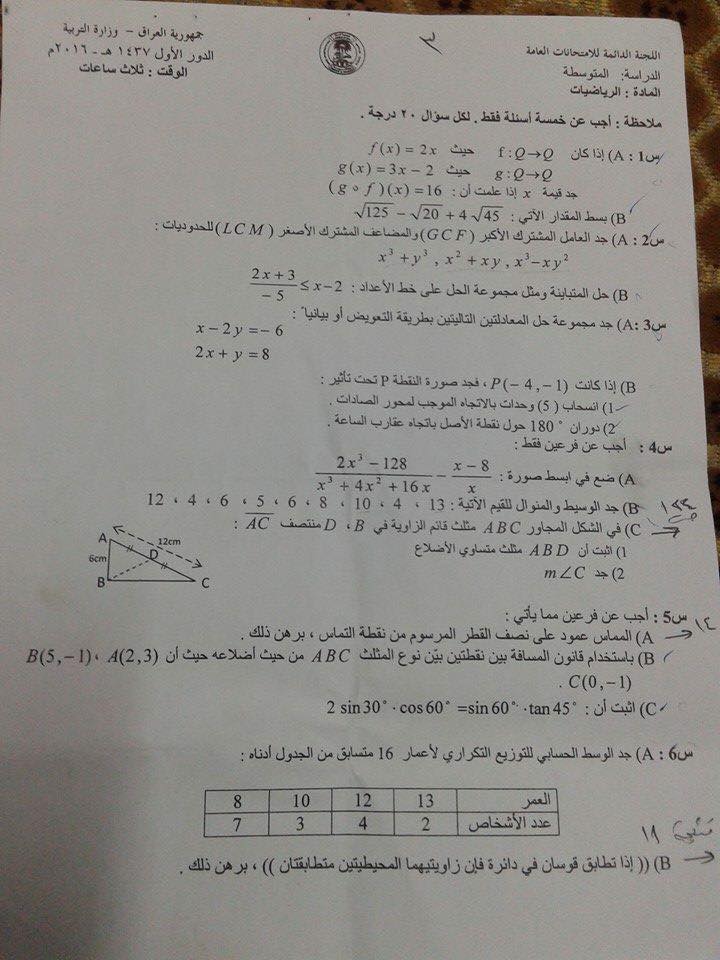 جمهورية العراق - وزارة التربية
الدور الأول ١٤٣٧ هـ - ٢٠١٦م
الوقت : ثلاث ساعات
٣
اللجنة الدائمة للامتحانات العامة
الدراسة: المتوسطة
المادة : الرياضيات
ملاحظة : أجب عن خمسة أسئلة فقط . لكل سؤال ٢٠ درجة .
س1 : A) إذا كان f : Q→Q حيث f(x) = 2x
g : Q→Q حيث g(x) = 3x − 2
جد قيمة x إذا علمت أن : (g ∘ f)(x) = 16
B) بسط المقدار الآتي : √125 − √20 + 4√45
س2 : A) جد العامل المشترك الأكبر (GCF) والمضاعف المشترك الأصغر (LCM) للحدوديات :
x³ + y³ , x² + xy , x³ − xy²
B) حل المتباينة ومثل مجموعة الحل على خط الأعداد : (2x + 3)/(−5) ≤ x − 2
س3 : A) جد مجموعة حل المعادلتين التاليتين بطريقة التعويض أو بيانياً :
x − 2y = −6
2x + y = 8
B) إذا كانت P(−4, −1) ، فجد صورة النقطة P تحت تأثير :
1) انسحاب (5) وحدات بالاتجاه الموجب لمحور الصادات .
2) دوران 180° حول نقطة الأصل باتجاه عقارب الساعة .
س4 : أجب عن فرعين فقط :
A) ضع في ابسط صورة : (2x³ − 128)/(x³ + 4x² + 16x) − (x − 8)/x
B) جد الوسيط والمنوال للقيم الآتية : 13 ، 4 ، 10 ، 8 ، 6 ، 5 ، 6 ، 4 ، 12
C) في الشكل المجاور ABC مثلث قائم الزاوية في B ، D منتصف AC :
1) اثبت أن ABD مثلث متساوي الأضلاع
2) جد m∠C
A
12cm
6cm
D
B
C
س5 : أجب عن فرعين مما يأتي :
١٤
A) المماس عمود على نصف القطر المرسوم من نقطة التماس ، برهن ذلك .
B) باستخدام قانون المسافة بين نقطتين بيّن نوع المثلث ABC من حيث أضلاعه حيث أن A(2,3) ، B(5,−1)
، C(0,−1) .
C) اثبت أن : 2 sin30° · cos60° = sin60° · tan45°
س6 : A) جد الوسط الحسابي للتوزيع التكراري لأعمار 16 متسابق من الجدول أدناه :
العمر 13 12 10 8
عدد الأشخاص 2 4 3 7
١٩
B) (( إذا تطابق قوسان في دائرة فإن زاويتيهما المحيطيتين متطابقتان )) ، برهن ذلك .